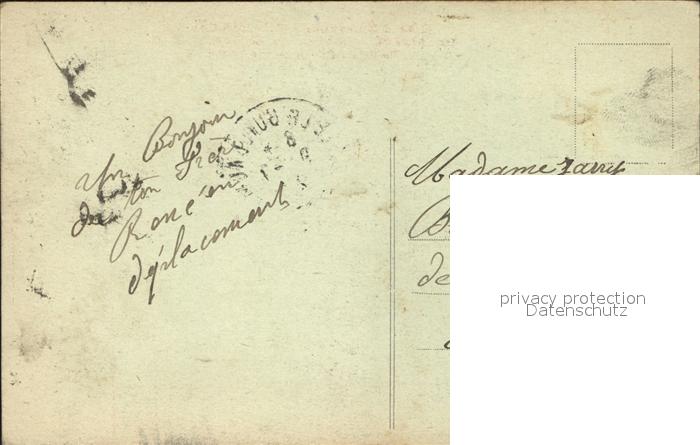 Un Bonjour
de ton Frère
René en
déplacement
Madame
B
de
privacy protection
Datenschutz